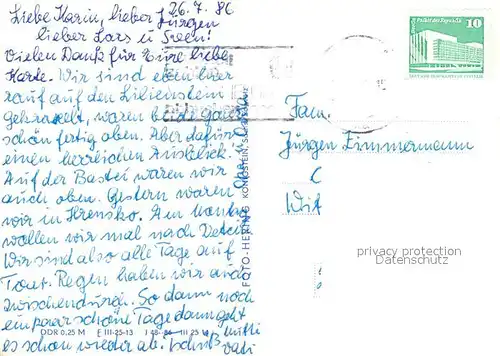 26.7.86
Liebe Karin, lieber Jürgen
lieber Lars u. Sven!
Vielen Dank für Eure liebe
Karte. Wir sind eben hier
rauf auf den Lilienstein
gekraxelt, waren beide ganz
schön fertig oben. Aber dafür
einen herrlichen Ausblick.
Auf der Bastei waren wir
auch oben. Gestern waren
wir in Hrensko. Am
wollen wir mal nach
Wir sind also alle Tage auf
Tour. Regen haben wir auch
zwischendurch. So dann noch
ein paar schöne Tage dann geht
es schon wieder ab. Tschüß Mutti
Vati
DDR 0,25 M III-25-13
FOTO-HERING KÖNIGSTEIN
Palast der Republik
10
Fam.
Jürgen Zimmermann
privacy protection
Datenschutz